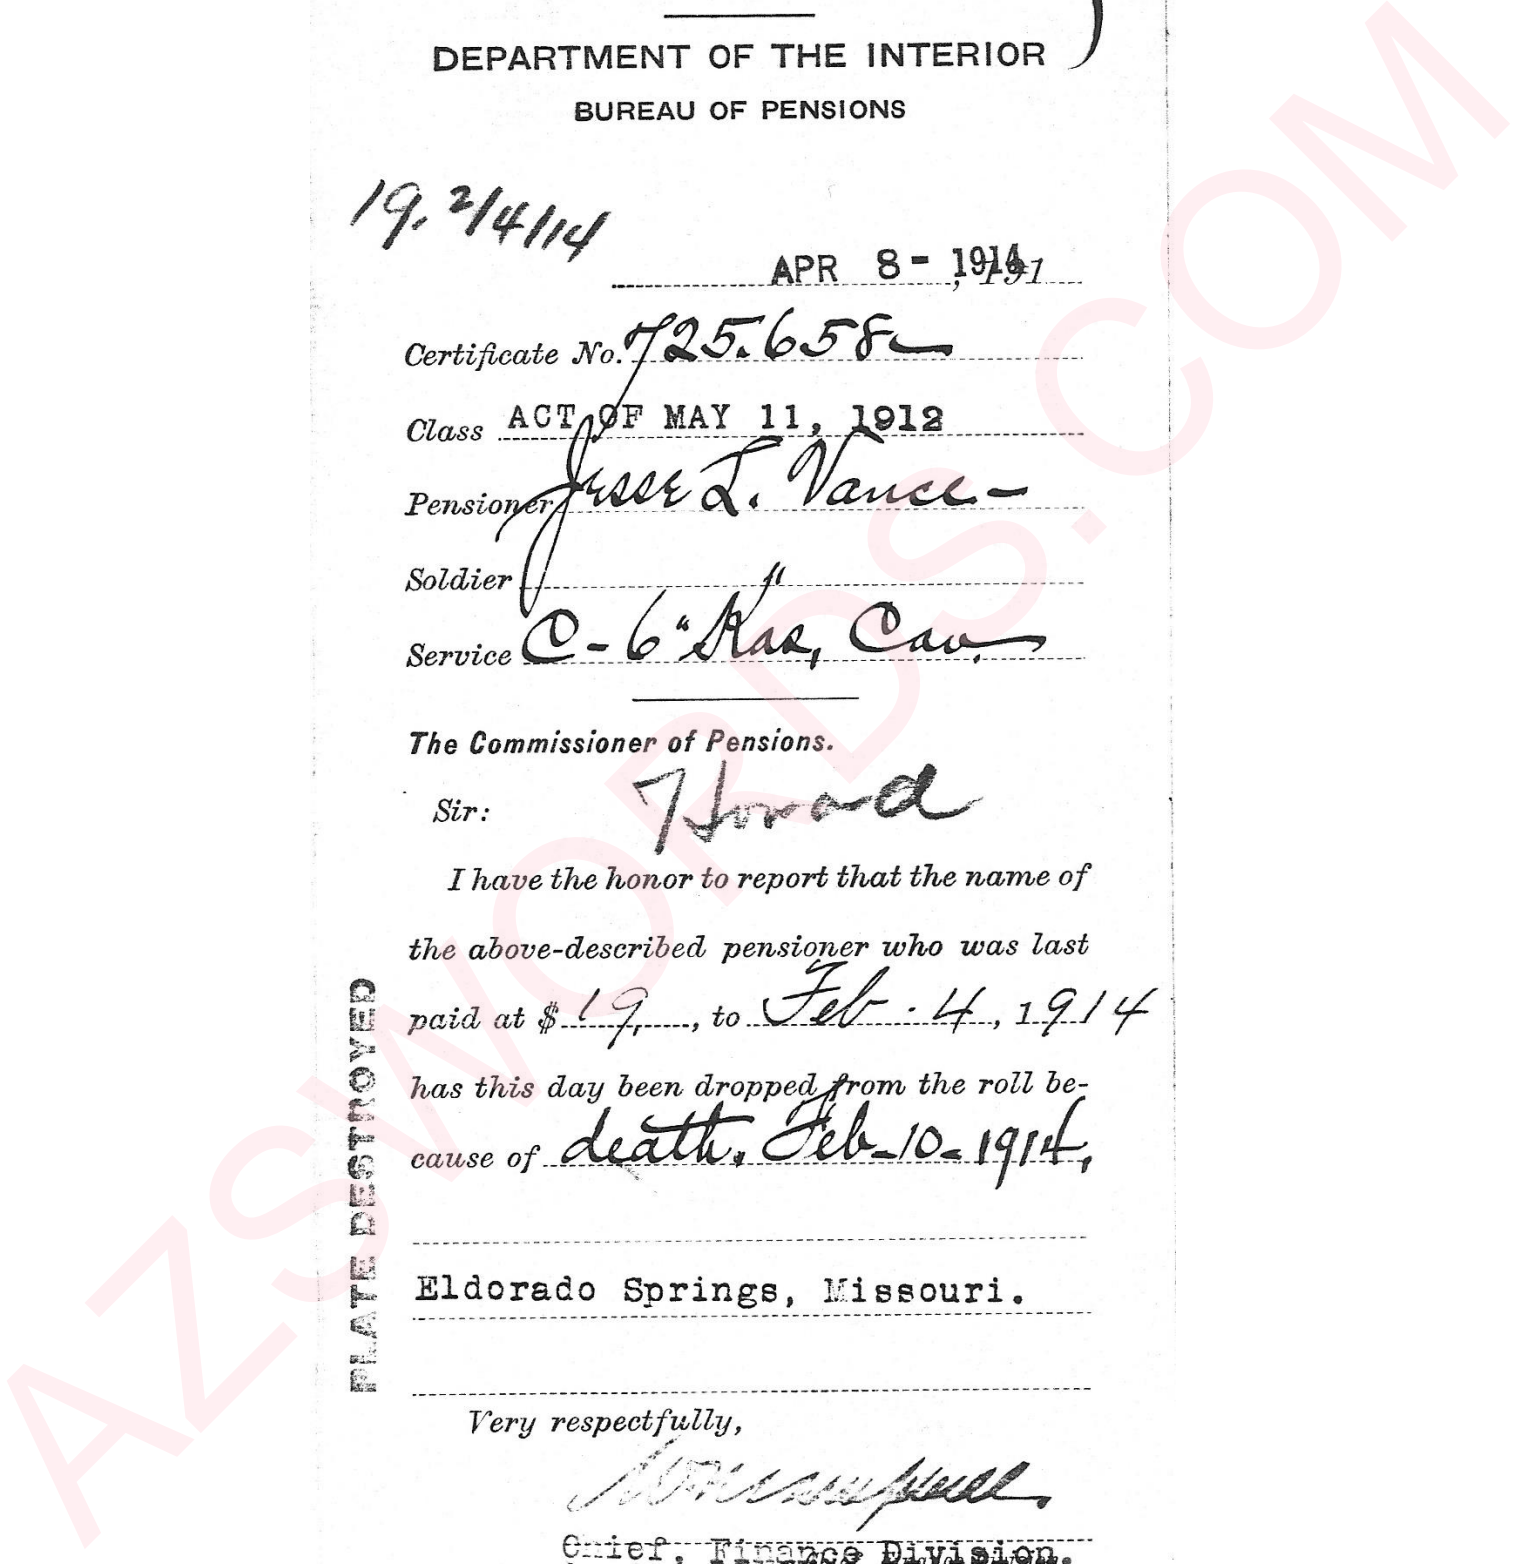 DEPARTMENT OF THE INTERIOR
BUREAU OF PENSIONS
19, 2/4/14
APR 8- 1914, 191
Certificate No. 725.658
Class ACT OF MAY 11, 1912
Pensioner Jesse L. Vance-
Soldier "
Service C-6" Kas, Cav.
The Commissioner of Pensions.
Howard
Sir:
I have the honor to report that the name of
the above-described pensioner who was last
paid at $ 19, , to Feb. 4, 1914
has this day been dropped from the roll be-
cause of death. Feb-10-1914,
Eldorado Springs, Missouri.
PLATE DESTROYED
Very respectfully,
Chief, Finance Division.
AZSWORDS.COM